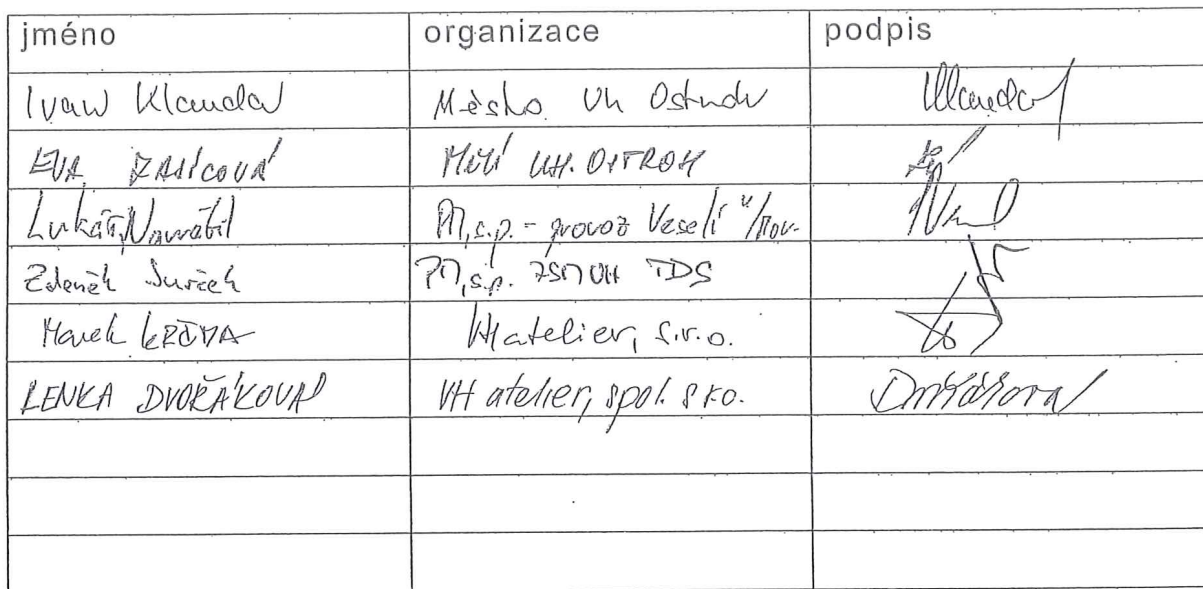 jméno organizace podpis
Ivan Klauda Město Uh Ostroh Klauda
EVA Město UH. OSTROH
Lukáš Navrátil PM, s.p. - provoz Veselí n/Mor.
Zdeněk PM, s.p. ZSM UH TDS
Marek VH atelier, s.r.o.
LENKA DVOŘÁKOVÁ VH atelier, spol. s r.o. Dvořáková